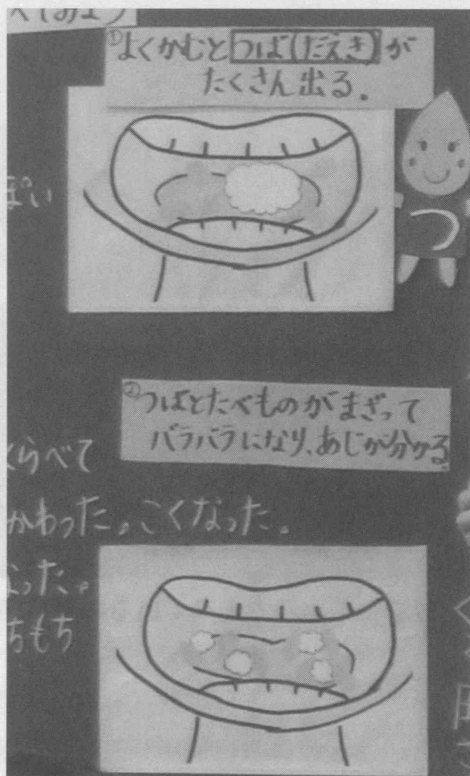 べてみよう
①よくかむとつば(だえき)が
たくさん出る。
ぽい
つ
②つばとたべものがまざって
バラバラになり、あじが分かる
くらべて
かわった。こくなった。
なった。
ちもち